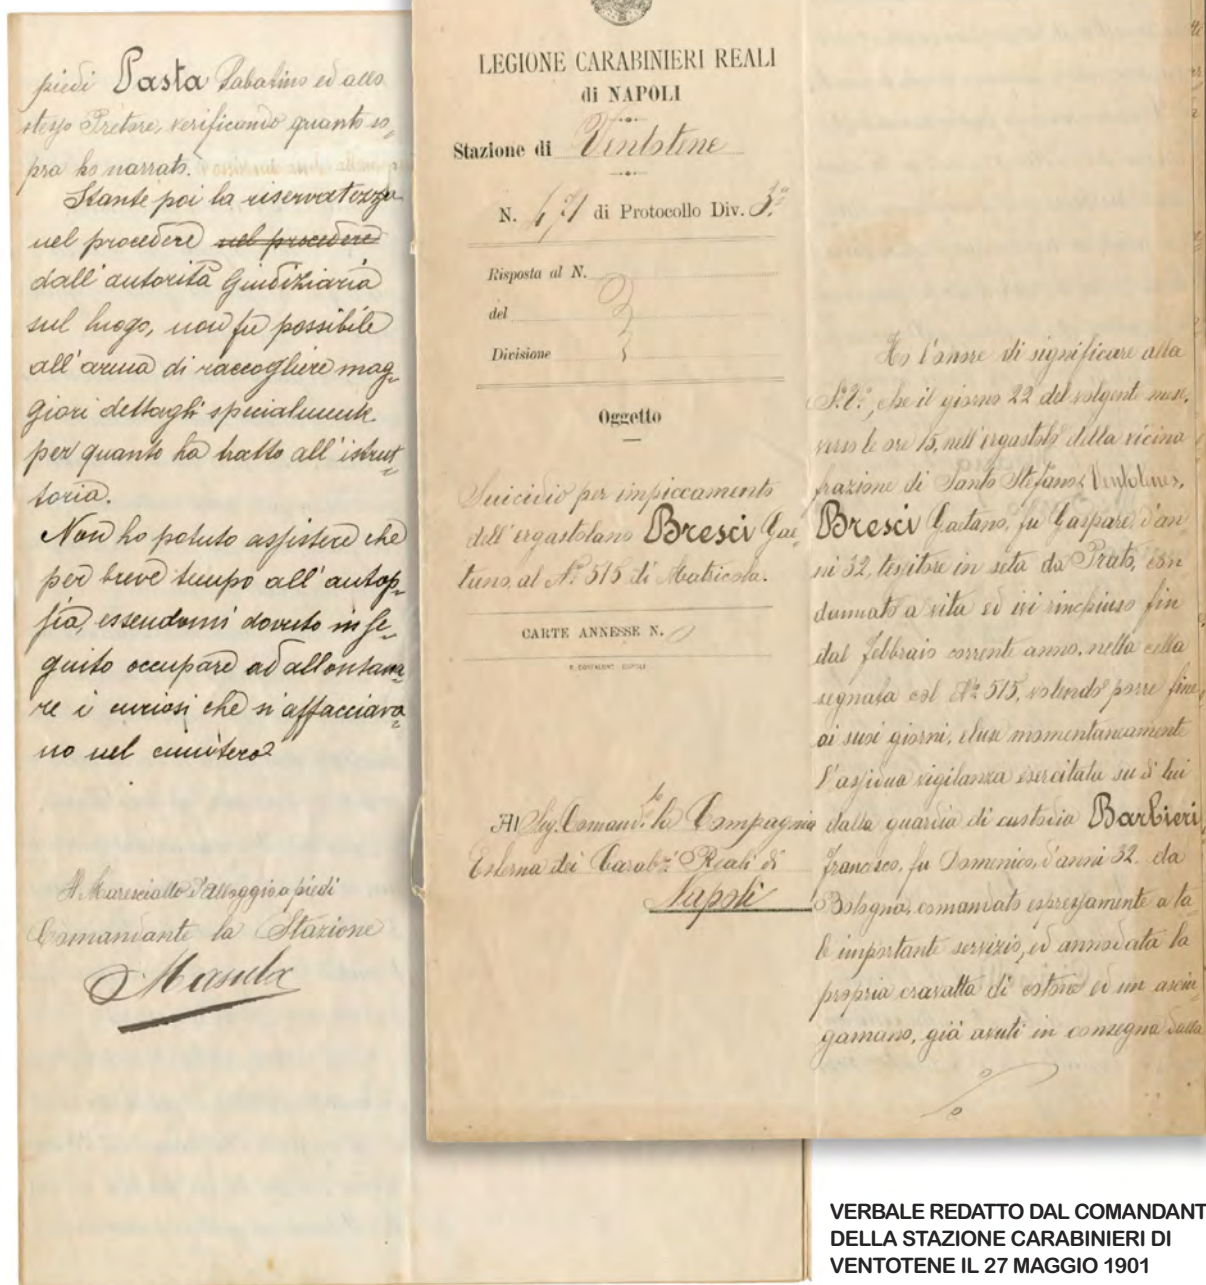 piedi Pasta Sabatino ed allo
stesso Pretore, verificando quanto so„
pra ho narrato.
Stante poi la riservatezza
nel procedere nel procedere
dall'autorità Giudiziaria
sul luogo, non fu possibile
all'arma di raccogliere mag„
giori dettagli specialmente
per quanto ha tratto all'istrut„
toria.
Non ho potuto assistere che
per breve tempo all'autop„
sia, essendomi dovuto in se„
guito occupare ad allontana„
re i curiosi che si affacciava„
no nel cimitero
Il Maresciallo d'alloggio a piedi
Comandante la Stazione
LEGIONE CARABINIERI REALI
di NAPOLI
Stazione di Ventotene
N. 4/71 di Protocollo Div. 3ª
Risposta al N.
del
Divisione
Oggetto
Suicidio per impiccamento
dell'ergastolano Bresci Gae„
tano, al Nº 515 di Matricola.
CARTE ANNESSE N. 0
Al Sig. Comandte la Compagnia
Esterna dei Carabri Reali di
Napoli
Ho l'onore di significare alla
S.V., che il giorno 22 del volgente mese,
verso le ore 15, nell'ergastolo della vicina
frazione di Santo Stefano, Ventotene,
Bresci Gaetano, fu Gaspare, d'an„
ni 32, tessitore in seta da Prato, con„
dannato a vita ed ivi rinchiuso fin
dal febbraio corrente anno, nella cella
segnata col Nº 515, volendo porre fine
ai suoi giorni, eluse momentaneamente
l'assidua vigilanza esercitata su di lui
dalla guardia di custodia Barbieri
Francesco, fu Domenico, d'anni 32. da
Bologna, comandato espressamente a ta„
le importante servizio, ed annodata la
propria cravatta di cotone ed un asciu„
gamano, già avuti in consegna dalla
VERBALE REDATTO DAL COMANDANT
DELLA STAZIONE CARABINIERI DI
VENTOTENE IL 27 MAGGIO 1901